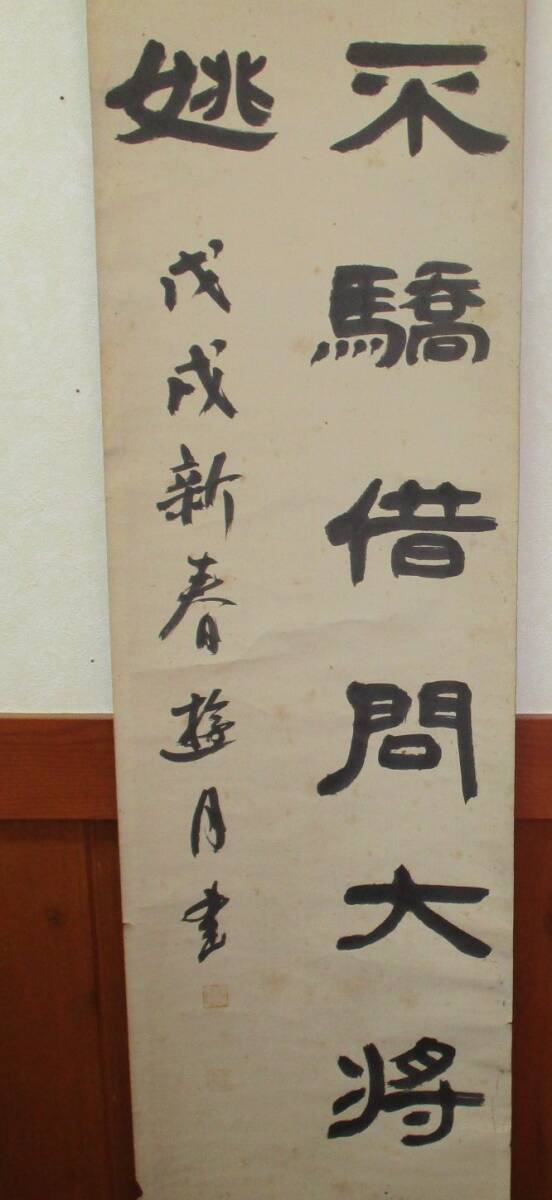 不驕借問大将
姚
戊戌新春遊月書